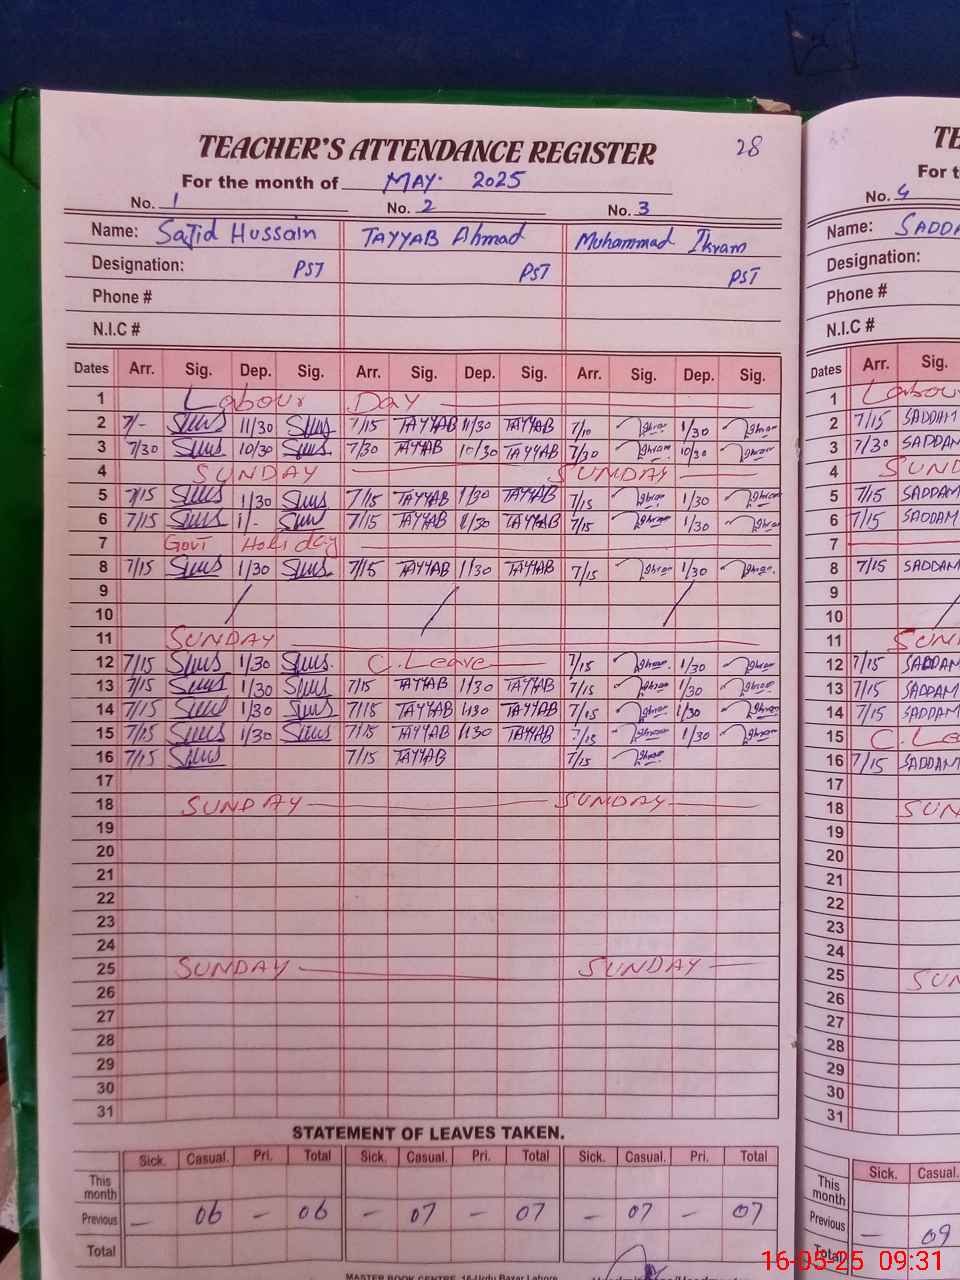 TEACHER'S ATTENDANCE REGISTER 28
For the month of MAY. 2025
No. 1 No. 2 No. 3
Name: Sajid Hussain TAYYAB Ahmad Muhammad Ikram
Designation: PST PST PST
Phone #
N.I.C #
Dates Arr. Sig. Dep. Sig. Arr. Sig. Dep. Sig. Arr. Sig. Dep. Sig.
1 Labour Day
2 7/- 11/30 7/15 TAYYAB 11/30 TAYYAB 7/10 Ikram 1/30 Ikram
3 7/30 10/30 7/30 TAYYAB 10/30 TAYYAB 7/30 Ikram 10/30 Ikram
4 SUNDAY SUNDAY
5 7/15 1/30 7/15 TAYYAB 1/30 TAYYAB 7/15 Ikram 1/30 Ikram
6 7/15 1/- 7/15 TAYYAB 1/30 TAYYAB 7/15 Ikram 1/30 Ikram
7 Govt Holiday
8 7/15 1/30 7/15 TAYYAB 1/30 TAYYAB 7/15 Ikram 1/30 Ikram
9
10
11 SUNDAY
12 7/15 1/30 C.Leave 7/15 Ikram 1/30 Ikram
13 7/15 1/30 7/15 TAYYAB 1/30 TAYYAB 7/15 Ikram 1/30 Ikram
14 7/15 1/30 7/15 TAYYAB 1/30 TAYYAB 7/15 Ikram 1/30 Ikram
15 7/15 1/30 7/15 TAYYAB 1/30 TAYYAB 7/15 Ikram 1/30 Ikram
16 7/15 7/15 TAYYAB 7/15 Ikram
17
18 SUNDAY SUNDAY
19
20
21
22
23
24
25 SUNDAY SUNDAY
26
27
28
29
30
31
STATEMENT OF LEAVES TAKEN.
Sick. Casual. Pri. Total Sick. Casual. Pri. Total Sick. Casual. Pri. Total
This month
Previous – 06 – 06 – 07 – 07 – 07 – 07
Total
MASTER BOOK CENTRE, 16-Urdu Bazar Lahore
For t
No. 4
Name: SADDA
Designation:
Phone #
N.I.C #
Dates Arr. Sig.
1 Labour
2 7/15 SADDAM
3 7/30 SADDAM
4 SUND
5 7/15 SADDAM
6 7/15 SADDAM
7
8 7/15 SADDAM
9
10
11 SUN
12 7/15 SADDAM
13 7/15 SADDAM
14 7/15 SADDAM
15 C.Le
16 7/15 SADDAM
17
18 SUN
19
20
21
22
23
24
25 SUN
26
27
28
29
30
31
Sick. Casual.
This month
Previous – 09
Total
16-05-25 09:31